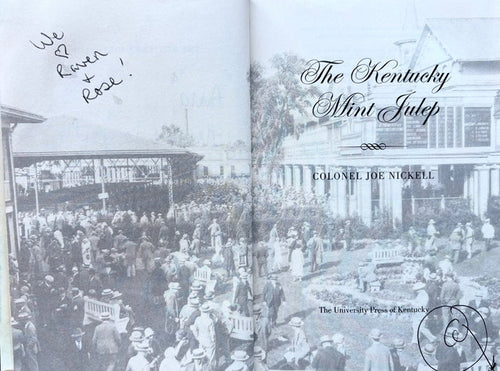 We
♡
Raven
+
Rose!
The Kentucky
Mint Julep
COLONEL JOE NICKELL
The University Press of Kentucky